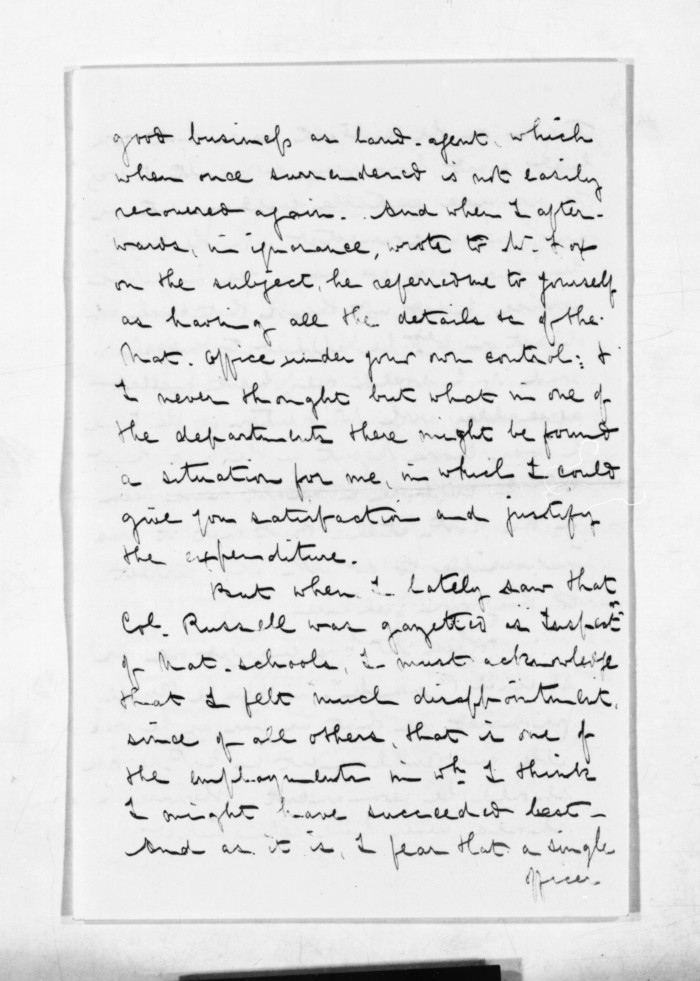 good business as land-agent, which
when once surrendered is not easily
recovered again. And when I after-
wards, in ignorance, wrote to Mr. Fox
on the subject, he referred me to yourself
as having all the details &c of the
Nat. Office under your own control; &
I never thought but what in one of
the departments there might be found
a situation for me, in which I could
give you satisfaction and justify
the expenditure.
But when I lately saw that
Col. Russell was gazetted as Inspectr
of Nat. schools, I must acknowledge
that I felt much disappointment,
since of all others, that is one of
the employments in wh. I think
I might have succeeded best -
And as it is, I fear that a single
officer